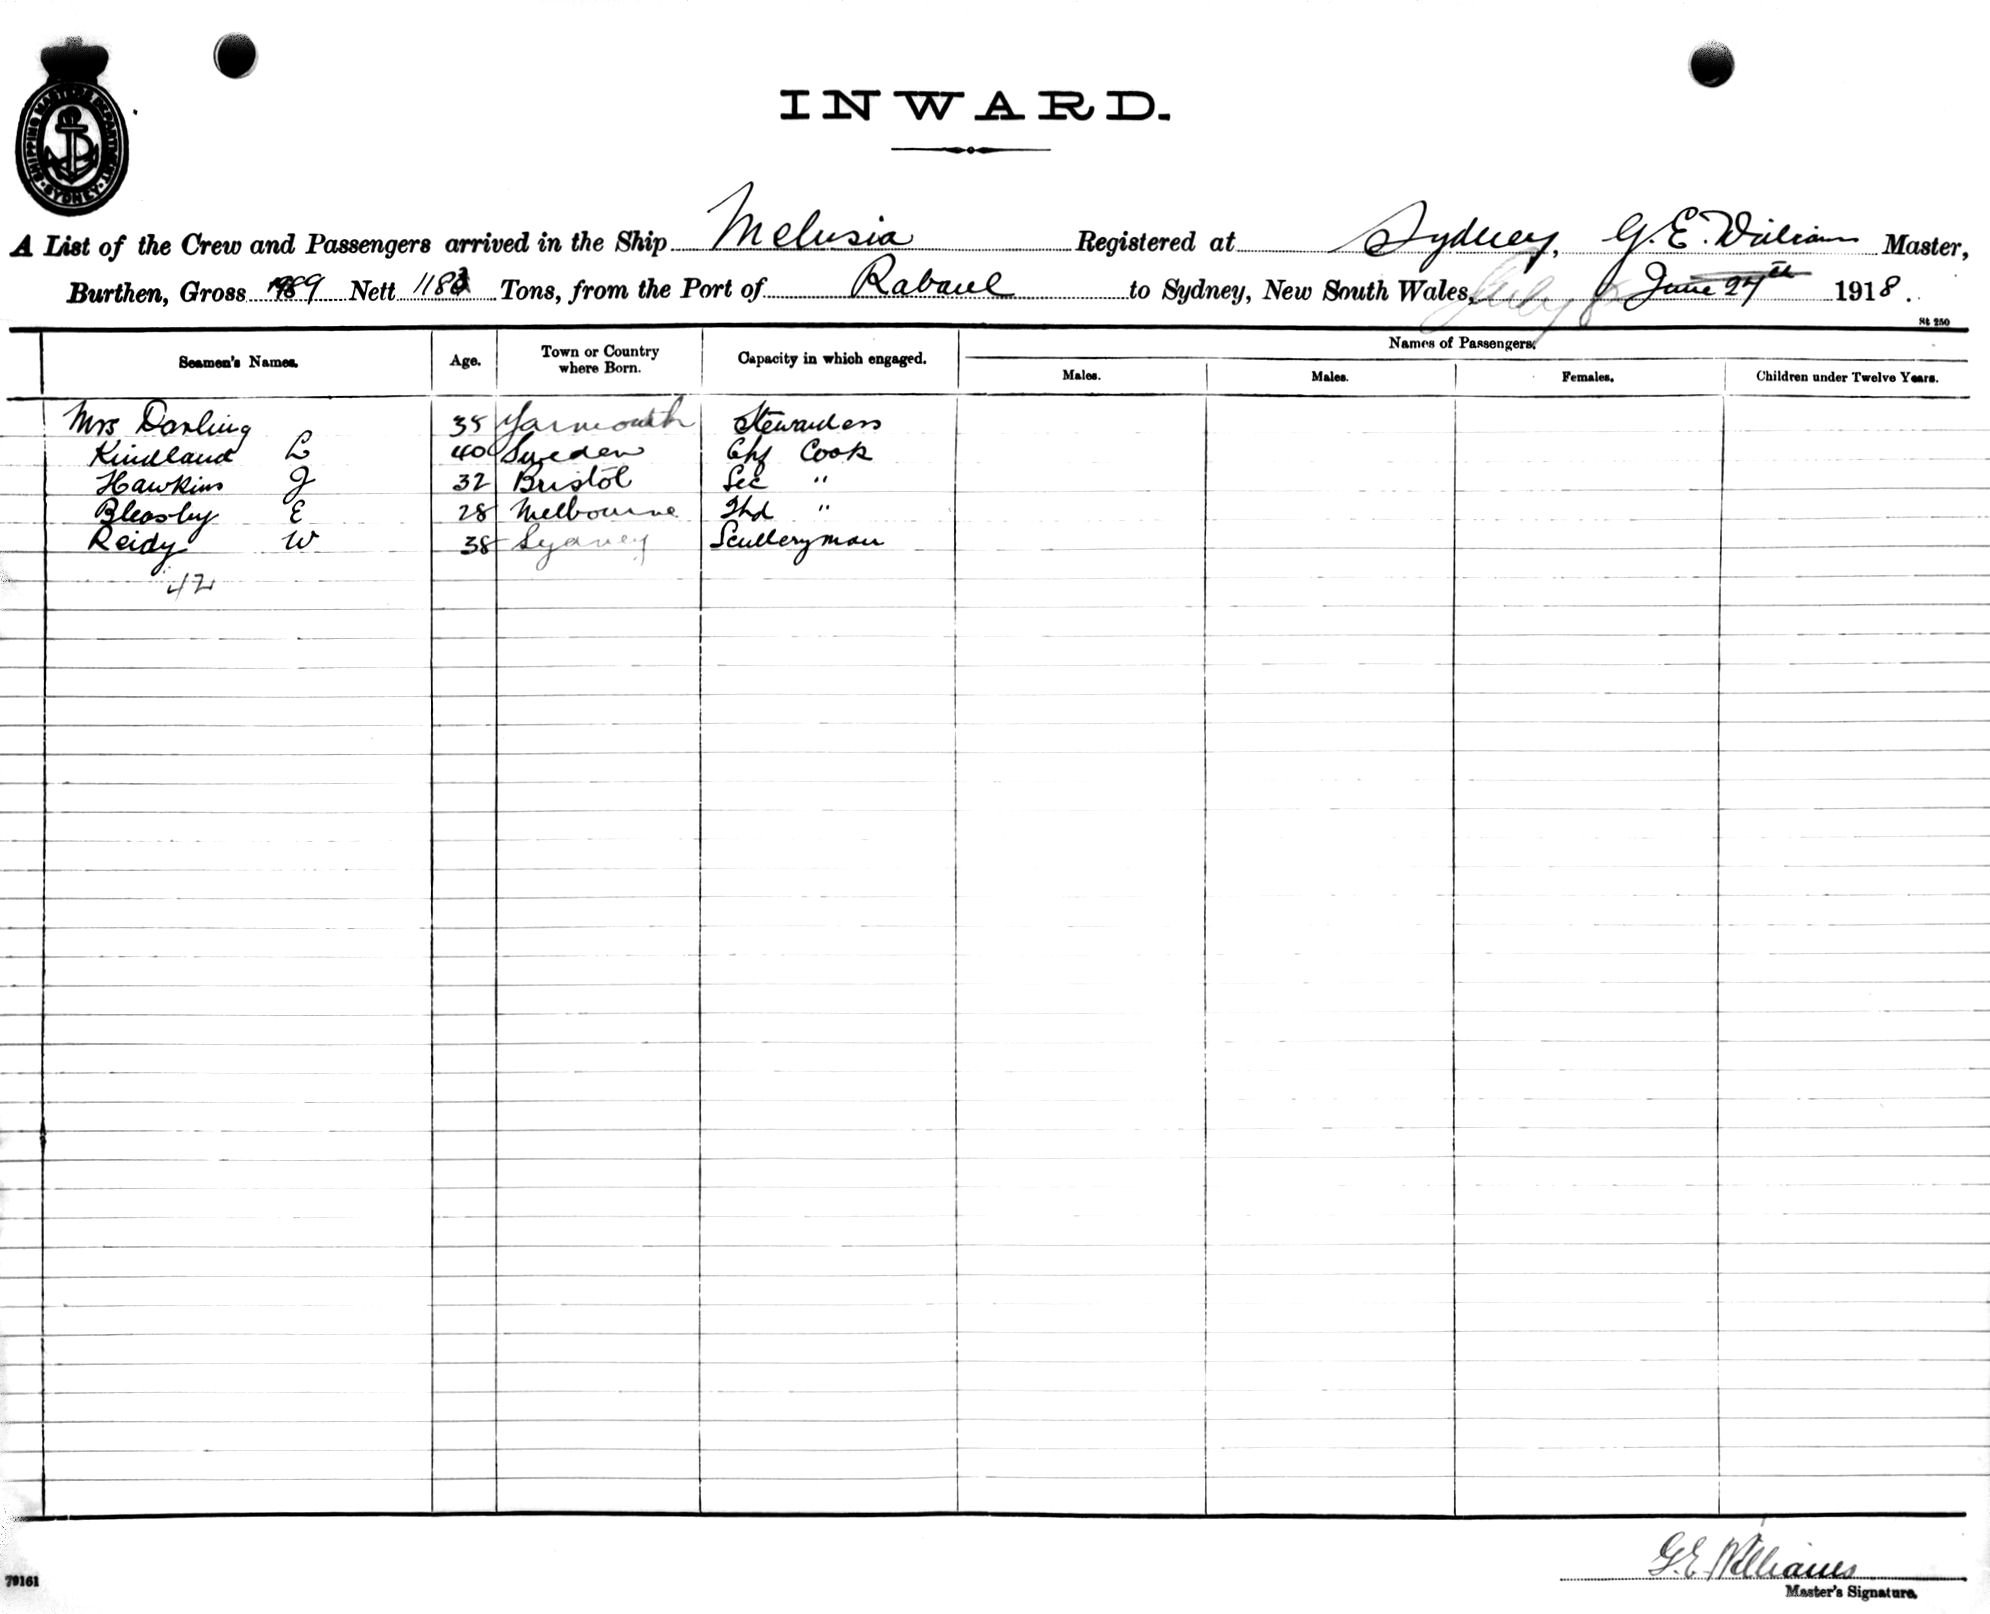 SHIPPING MASTERS DEPARTMENT SYDNEY
INWARD.
A List of the Crew and Passengers arrived in the Ship Melusia Registered at Sydney, G. E. Williams Master,
Burthen, Gross Nett Tons, from the Port of Rabaul to Sydney, New South Wales, July June 27th 1918.
St 250
Seamen's Names. Age. Town or Country where Born. Capacity in which engaged. Names of Passengers.
Males. Males. Females. Children under Twelve Years.
Mrs Darling 35 Yarmouth Stewardess
Kindland L 40 Sweden Chf Cook
Hawkins J 32 Bristol Sec "
Bleasby E 28 Melbourne Thd "
Reidy W 38 Sydney Sculleryman
42
G. E. Williams
79161
Master's Signature.